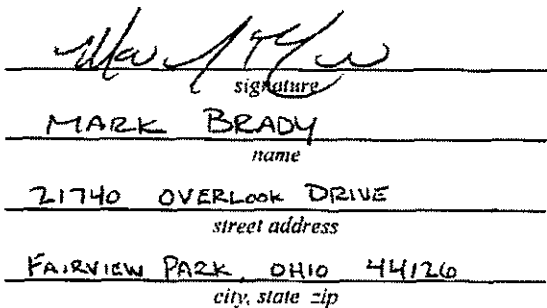 signature
MARK BRADY
name
21740 OVERLOOK DRIVE
street address
FAIRVIEW PARK, OHIO 44126
city, state zip